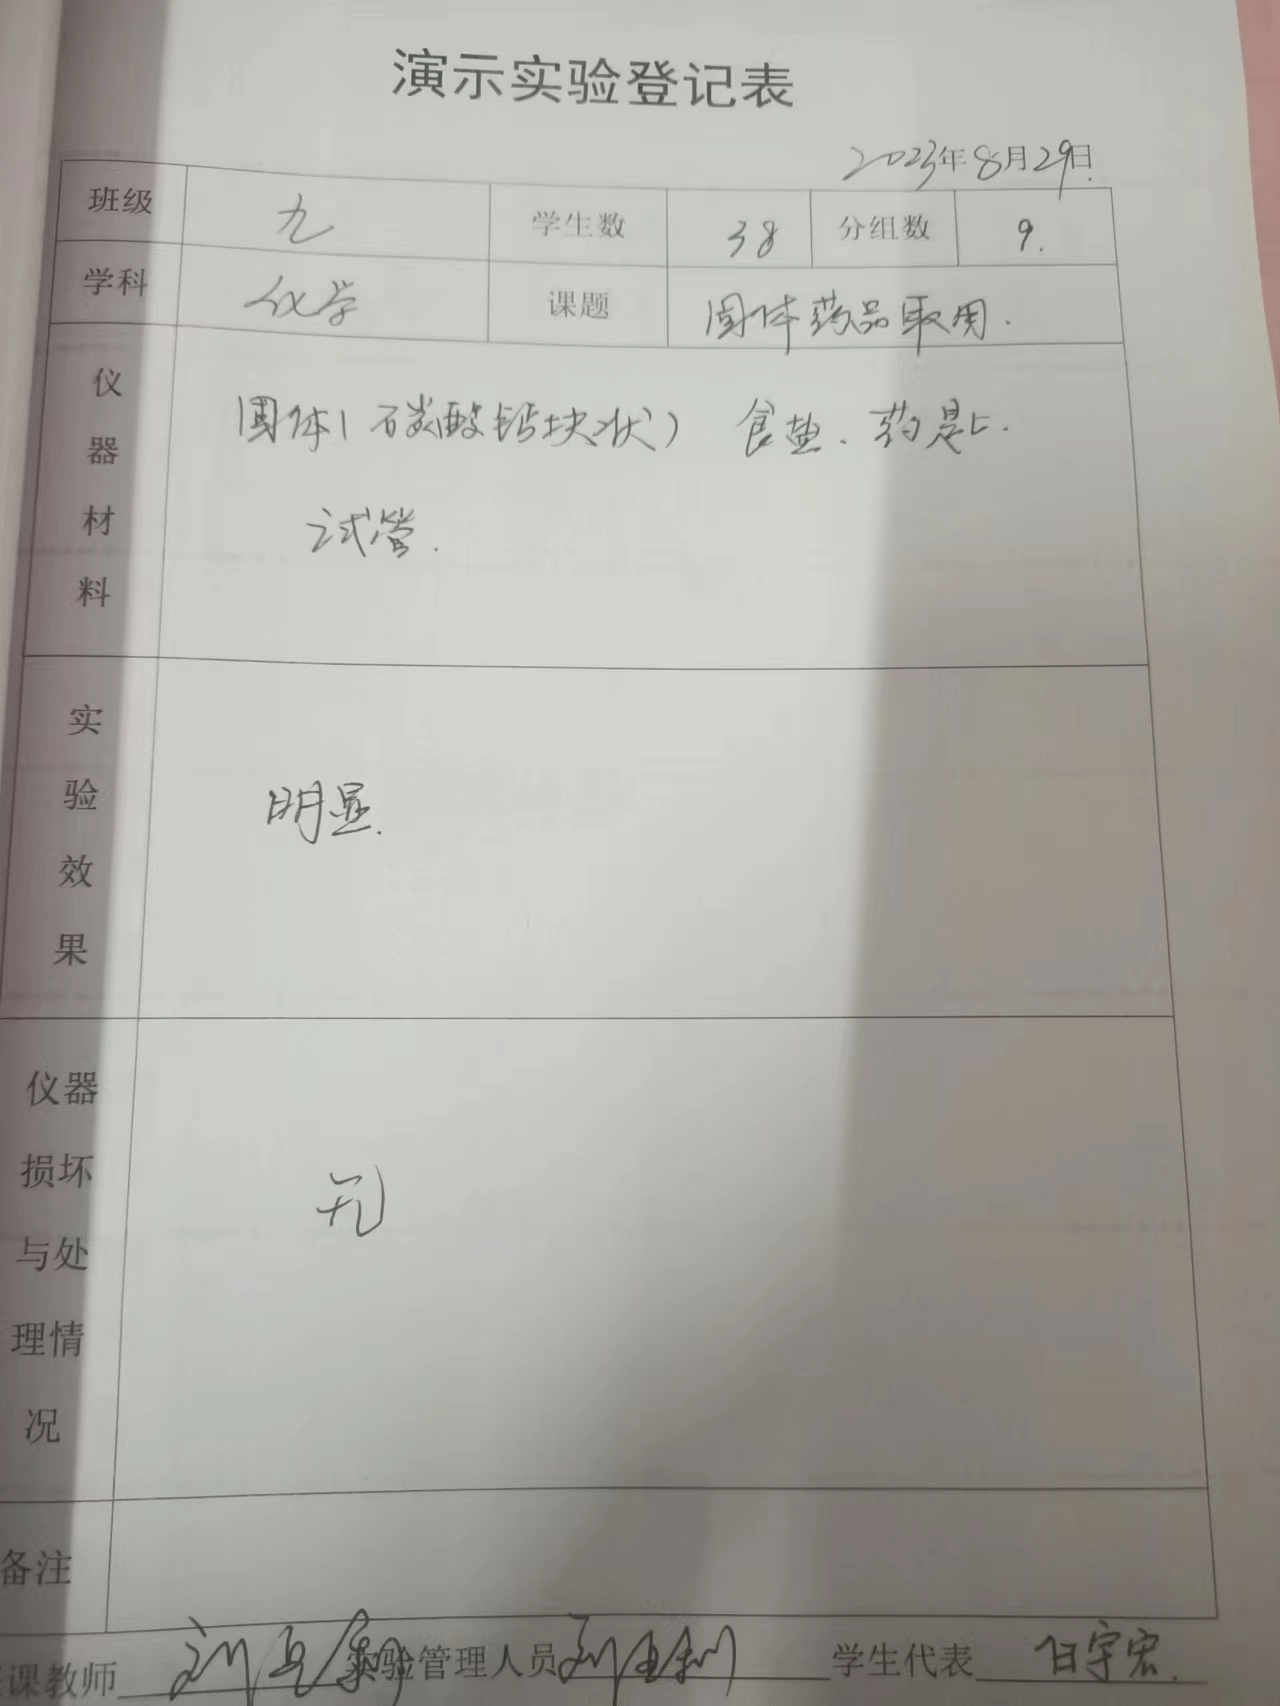 演示实验登记表
2023年8月29日
班级 九 学生数 38 分组数 9.
学科 化学 课题 固体药品取用.
仪器材料 固体(碳酸钙块状) 食盐、药匙.
试管.
实验效果 明显.
仪器损坏与处理情况 无
备注
课教师 刘 实验管理人员 刘 学生代表 白宇宏.